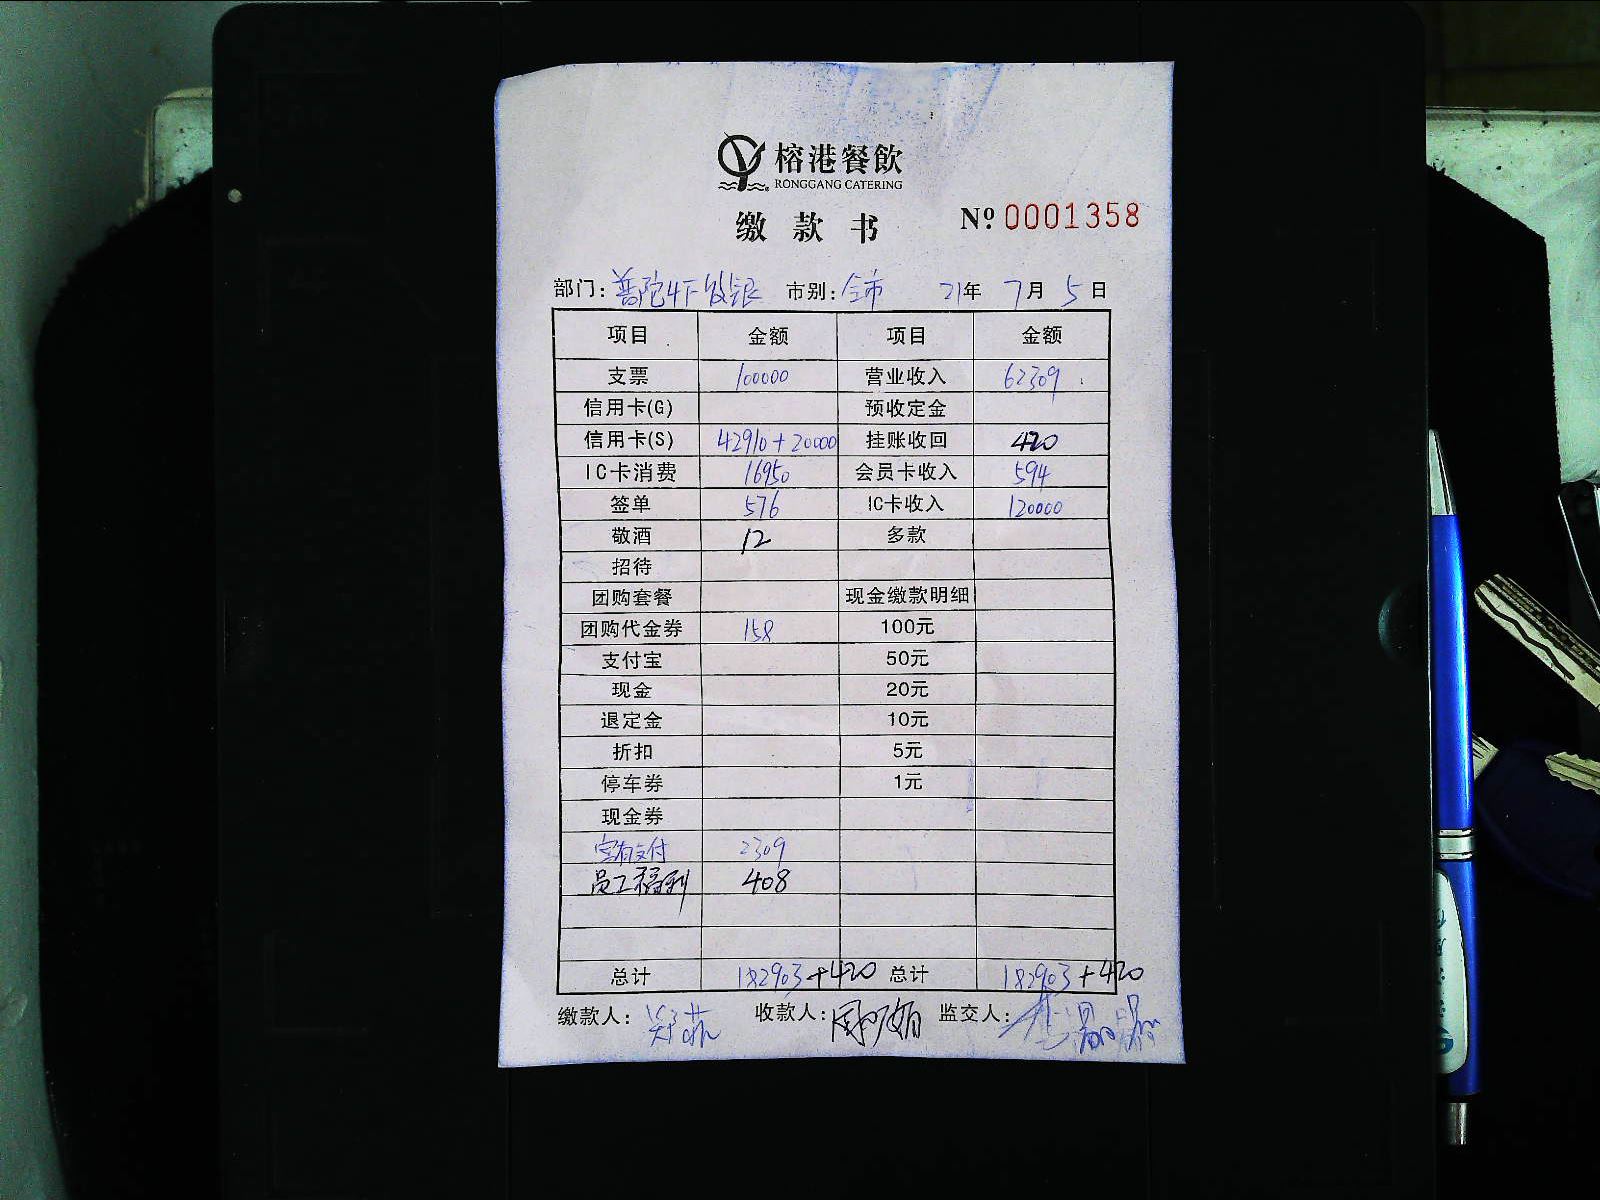 榕港餐飲
RONGGANG CATERING
缴款书 Nº 0001358
部门: 普陀4F收银 市别: 全市 21年 7月 5日
项目 金额 项目 金额
支票 100000 营业收入 62309
信用卡(G) 预收定金
信用卡(S) 42910+20000 挂账收回 420
IC卡消费 16950 会员卡收入 594
签单 576 IC卡收入 120000
敬酒 12 多款
招待
团购套餐 现金缴款明细
团购代金券 158 100元
支付宝 50元
现金 20元
退定金 10元
折扣 5元
停车券 1元
现金券
支付 2309
员工福利 408
总计 182903+420 总计 182903+420
缴款人: 郑菲 收款人: 监交人: